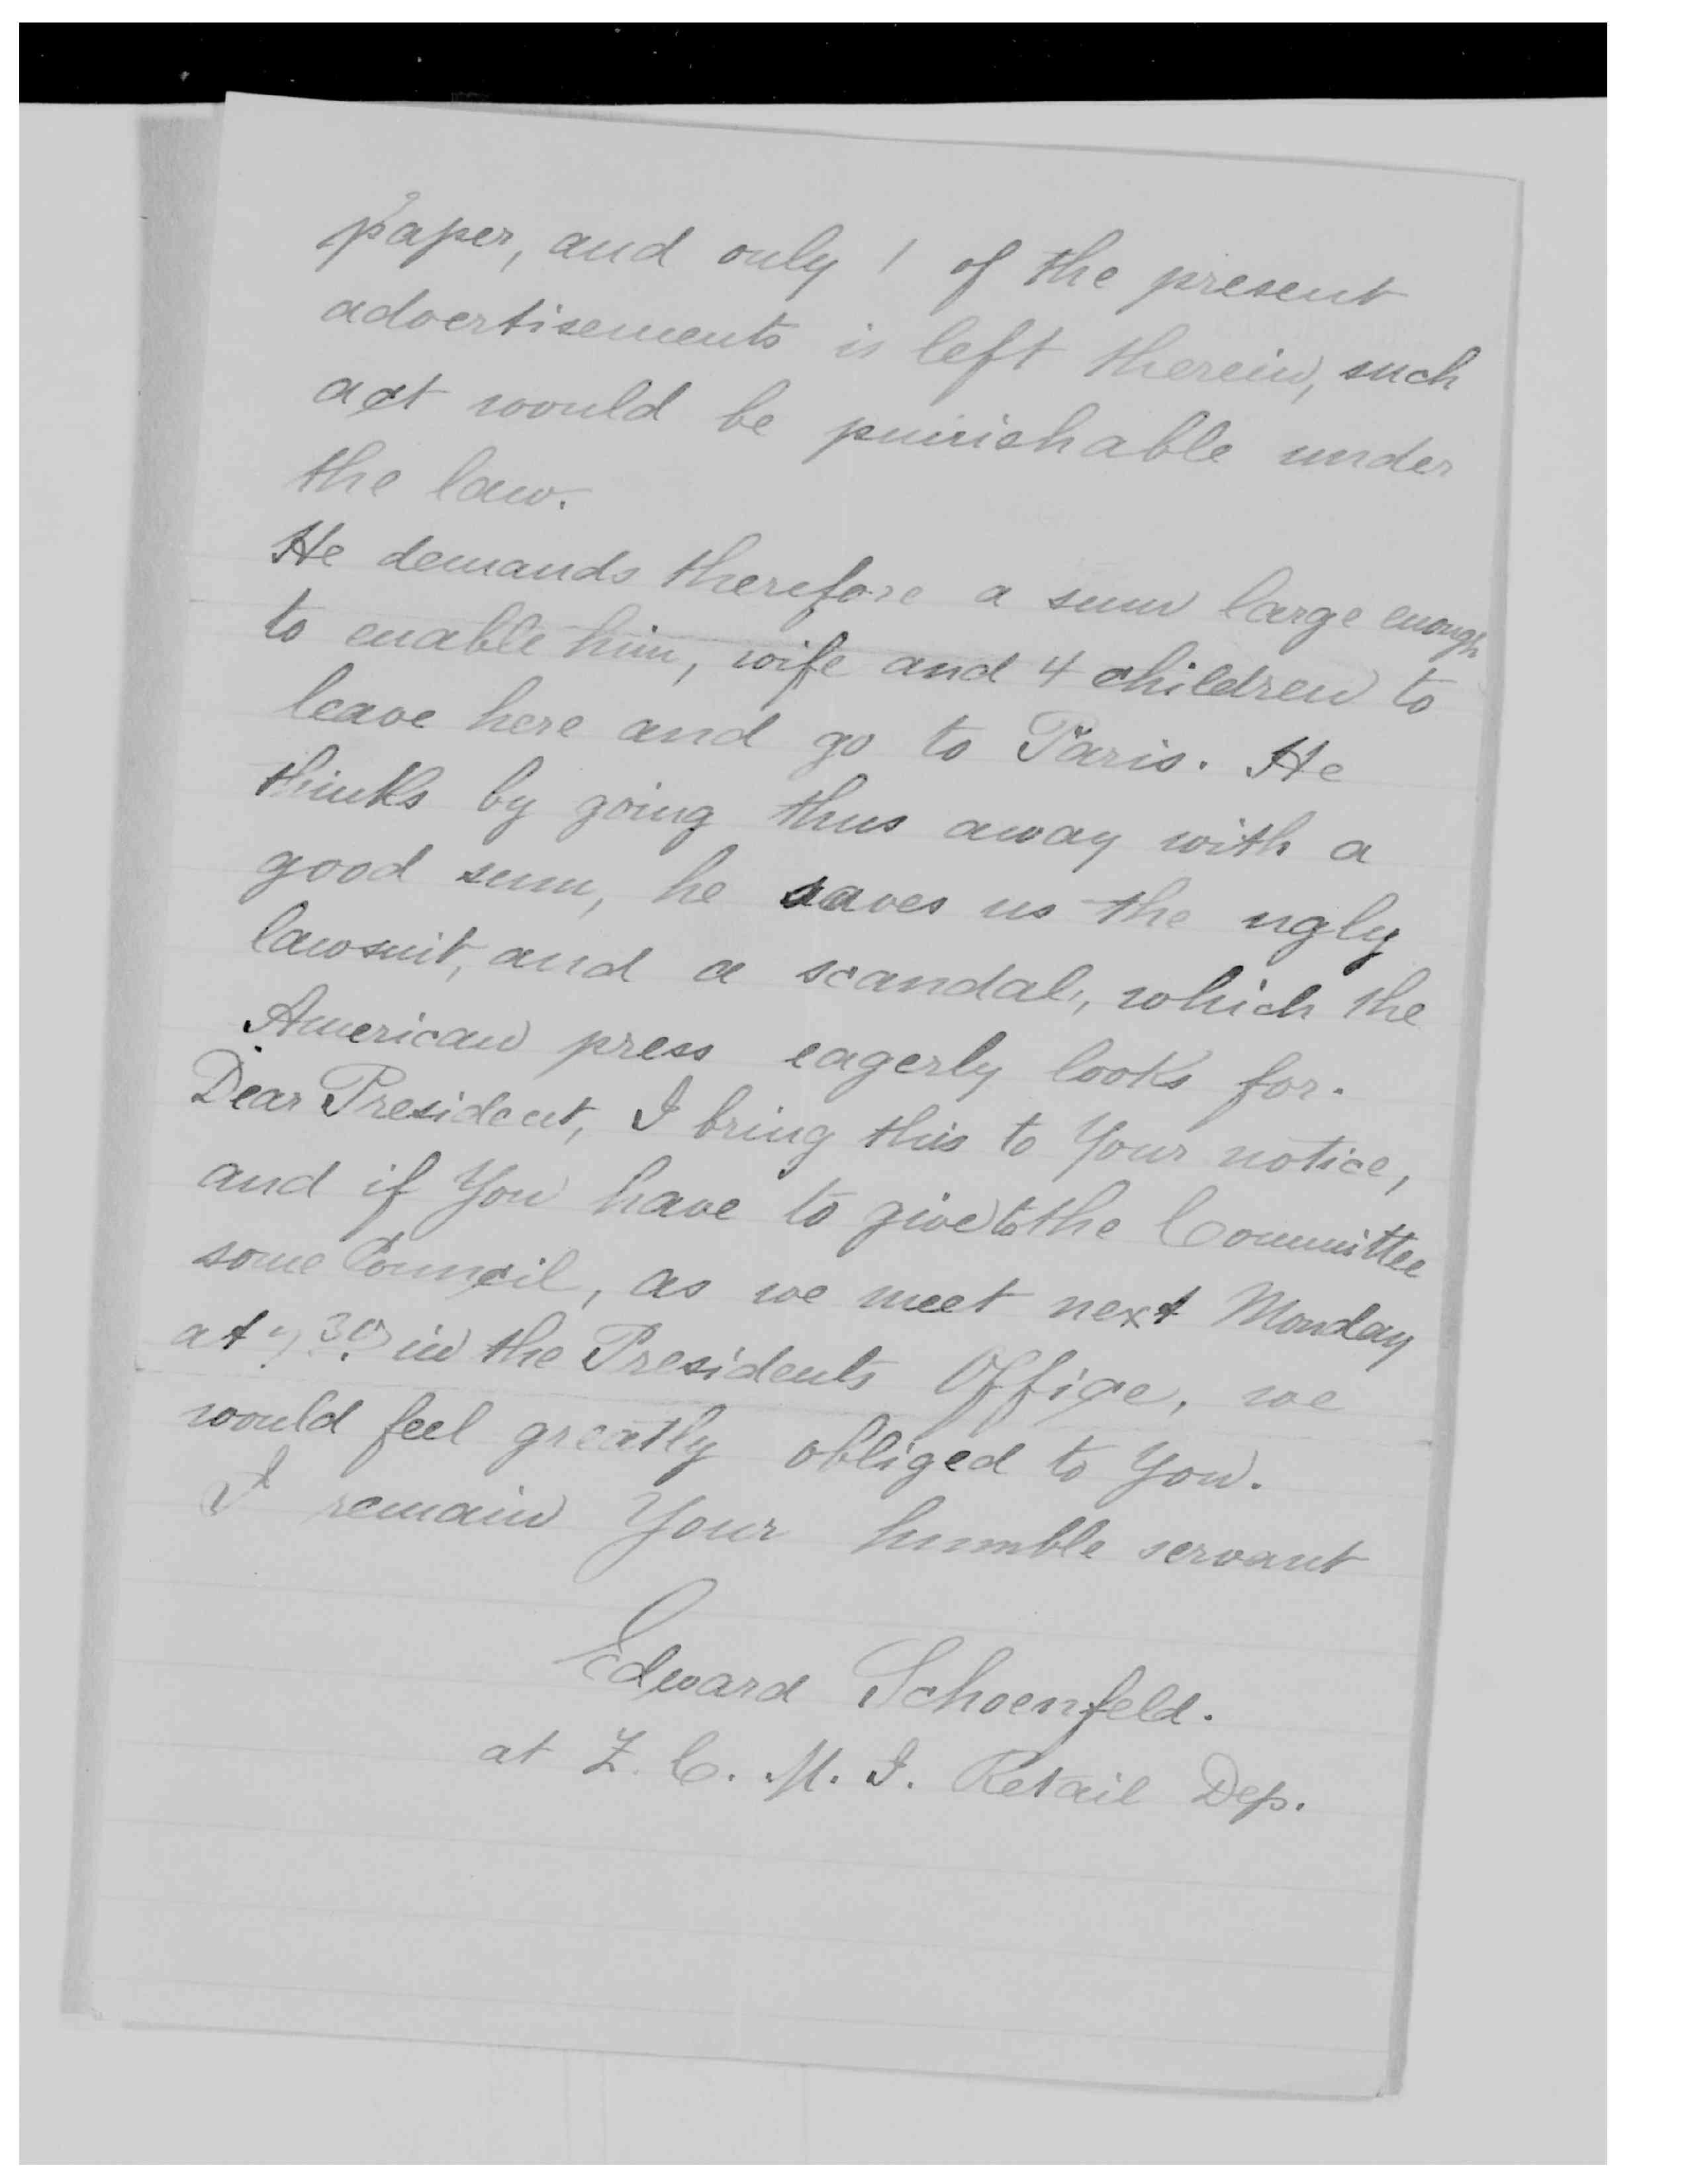 paper, and only 1 of the present
advertisements is left therein, such
act would be punishable under
the law.
He demands therefore a sum large enough
to enable him, wife and 4 children to
leave here and go to Paris. He
thinks by going thus away with a
good sum, he saves us the ugly
lawsuit, and a scandal, which the
American press eagerly looks for.
Dear President, I bring this to Your notice,
and if You have to give to the Committee
some Council, as we meet next Monday
at 7 30 in the Presidents Office, we
would feel greatly obliged to You.
I remain Your humble servant
Edward Schoenfeld.
at Z. C. M. I. Retail Dep.